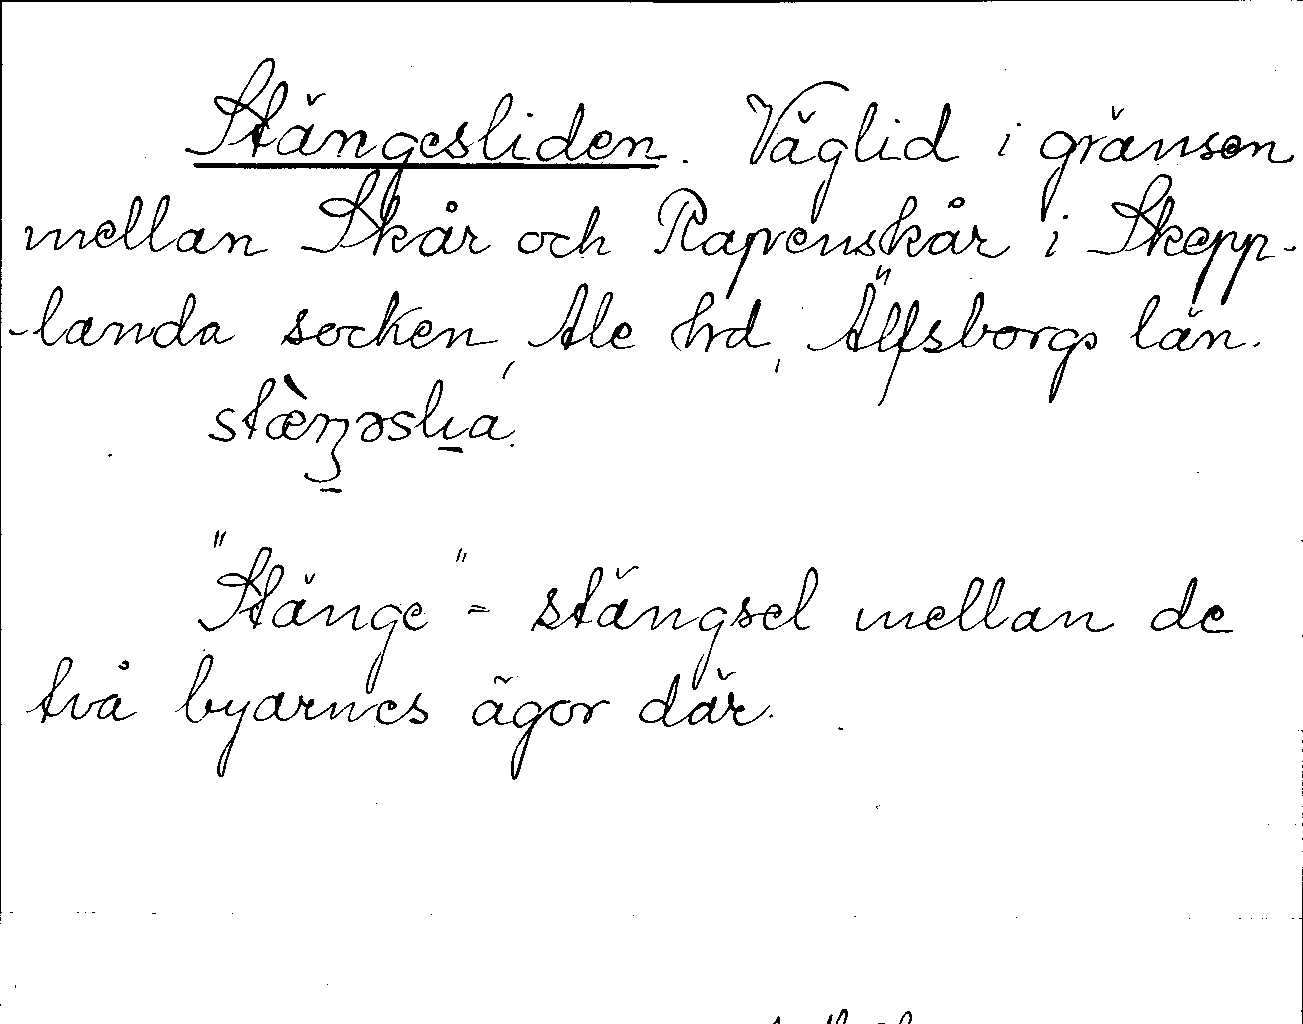 Stängesliden. Väglid i gränsen
mellan Skår och Rapenskår i Skepp-
-landa socken, Ale hrd, Älfsborgs län.
stæ̀ŋəslia.
"Stänge" - stängsel mellan de
två byarnes ägor där.